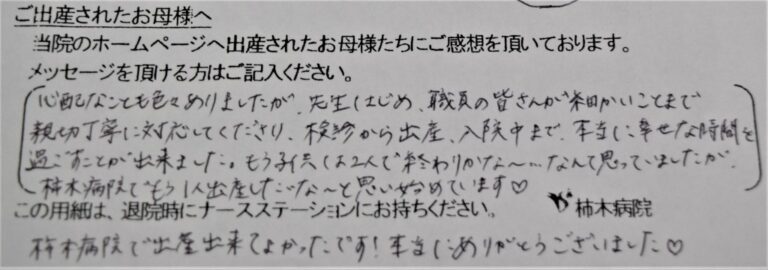 ご出産されたお母様へ
当院のホームページへ出産されたお母様たちにご感想を頂いております。
メッセージを頂ける方はご記入ください。
心配なことも色々ありましたが、先生はじめ、職員の皆さんが細かいことまで
親切丁寧に対応してくださり、検診から出産、入院中まで、本当に幸せな時間を
過ごすことが出来ました。もう子供は2人で終わりかな〜…なんて思っていましたが、
柿木病院でもう1人出産したいな〜と思い始めています♡
この用紙は、退院時にナースステーションにお持ちください。 柿木病院
柿木病院で出産出来てよかったです!本当にありがとうございました♡